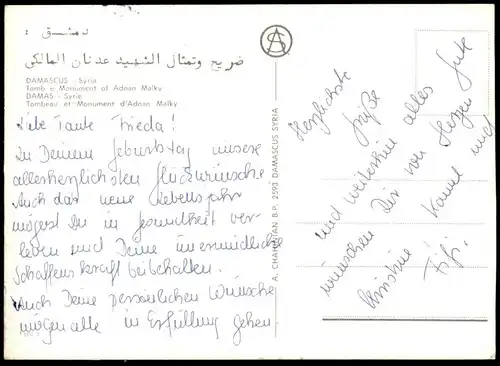 دمشق :
ضريح وتمثال الشهيد عدنان المالكي
DAMASCUS - Syria
Tomb e Monument of Adnan Malky
DAMAS - Syrie
Tombeau et Monument d'Adnan Malky
Liebe Tante Frieda!
Zu Deinem Geburtstag unsere
allerherzlichsten Glückwünsche
Auch das neue Lebensjahr
mögest Du in Gesundheit ver-
leben und Deine unermüdliche
Schaffenskraft beibehalten.
Auch Deine persönlichen Wünsche
mögen alle in Erfüllung gehen.
A. CHAHINIAN B.P. 2993 DAMASCUS SYRIA
AS
Herzlichste
Grüße
und weiterhin alles Gute
wünschen Dir von Herzen
Christine Kamal und
Fifi.